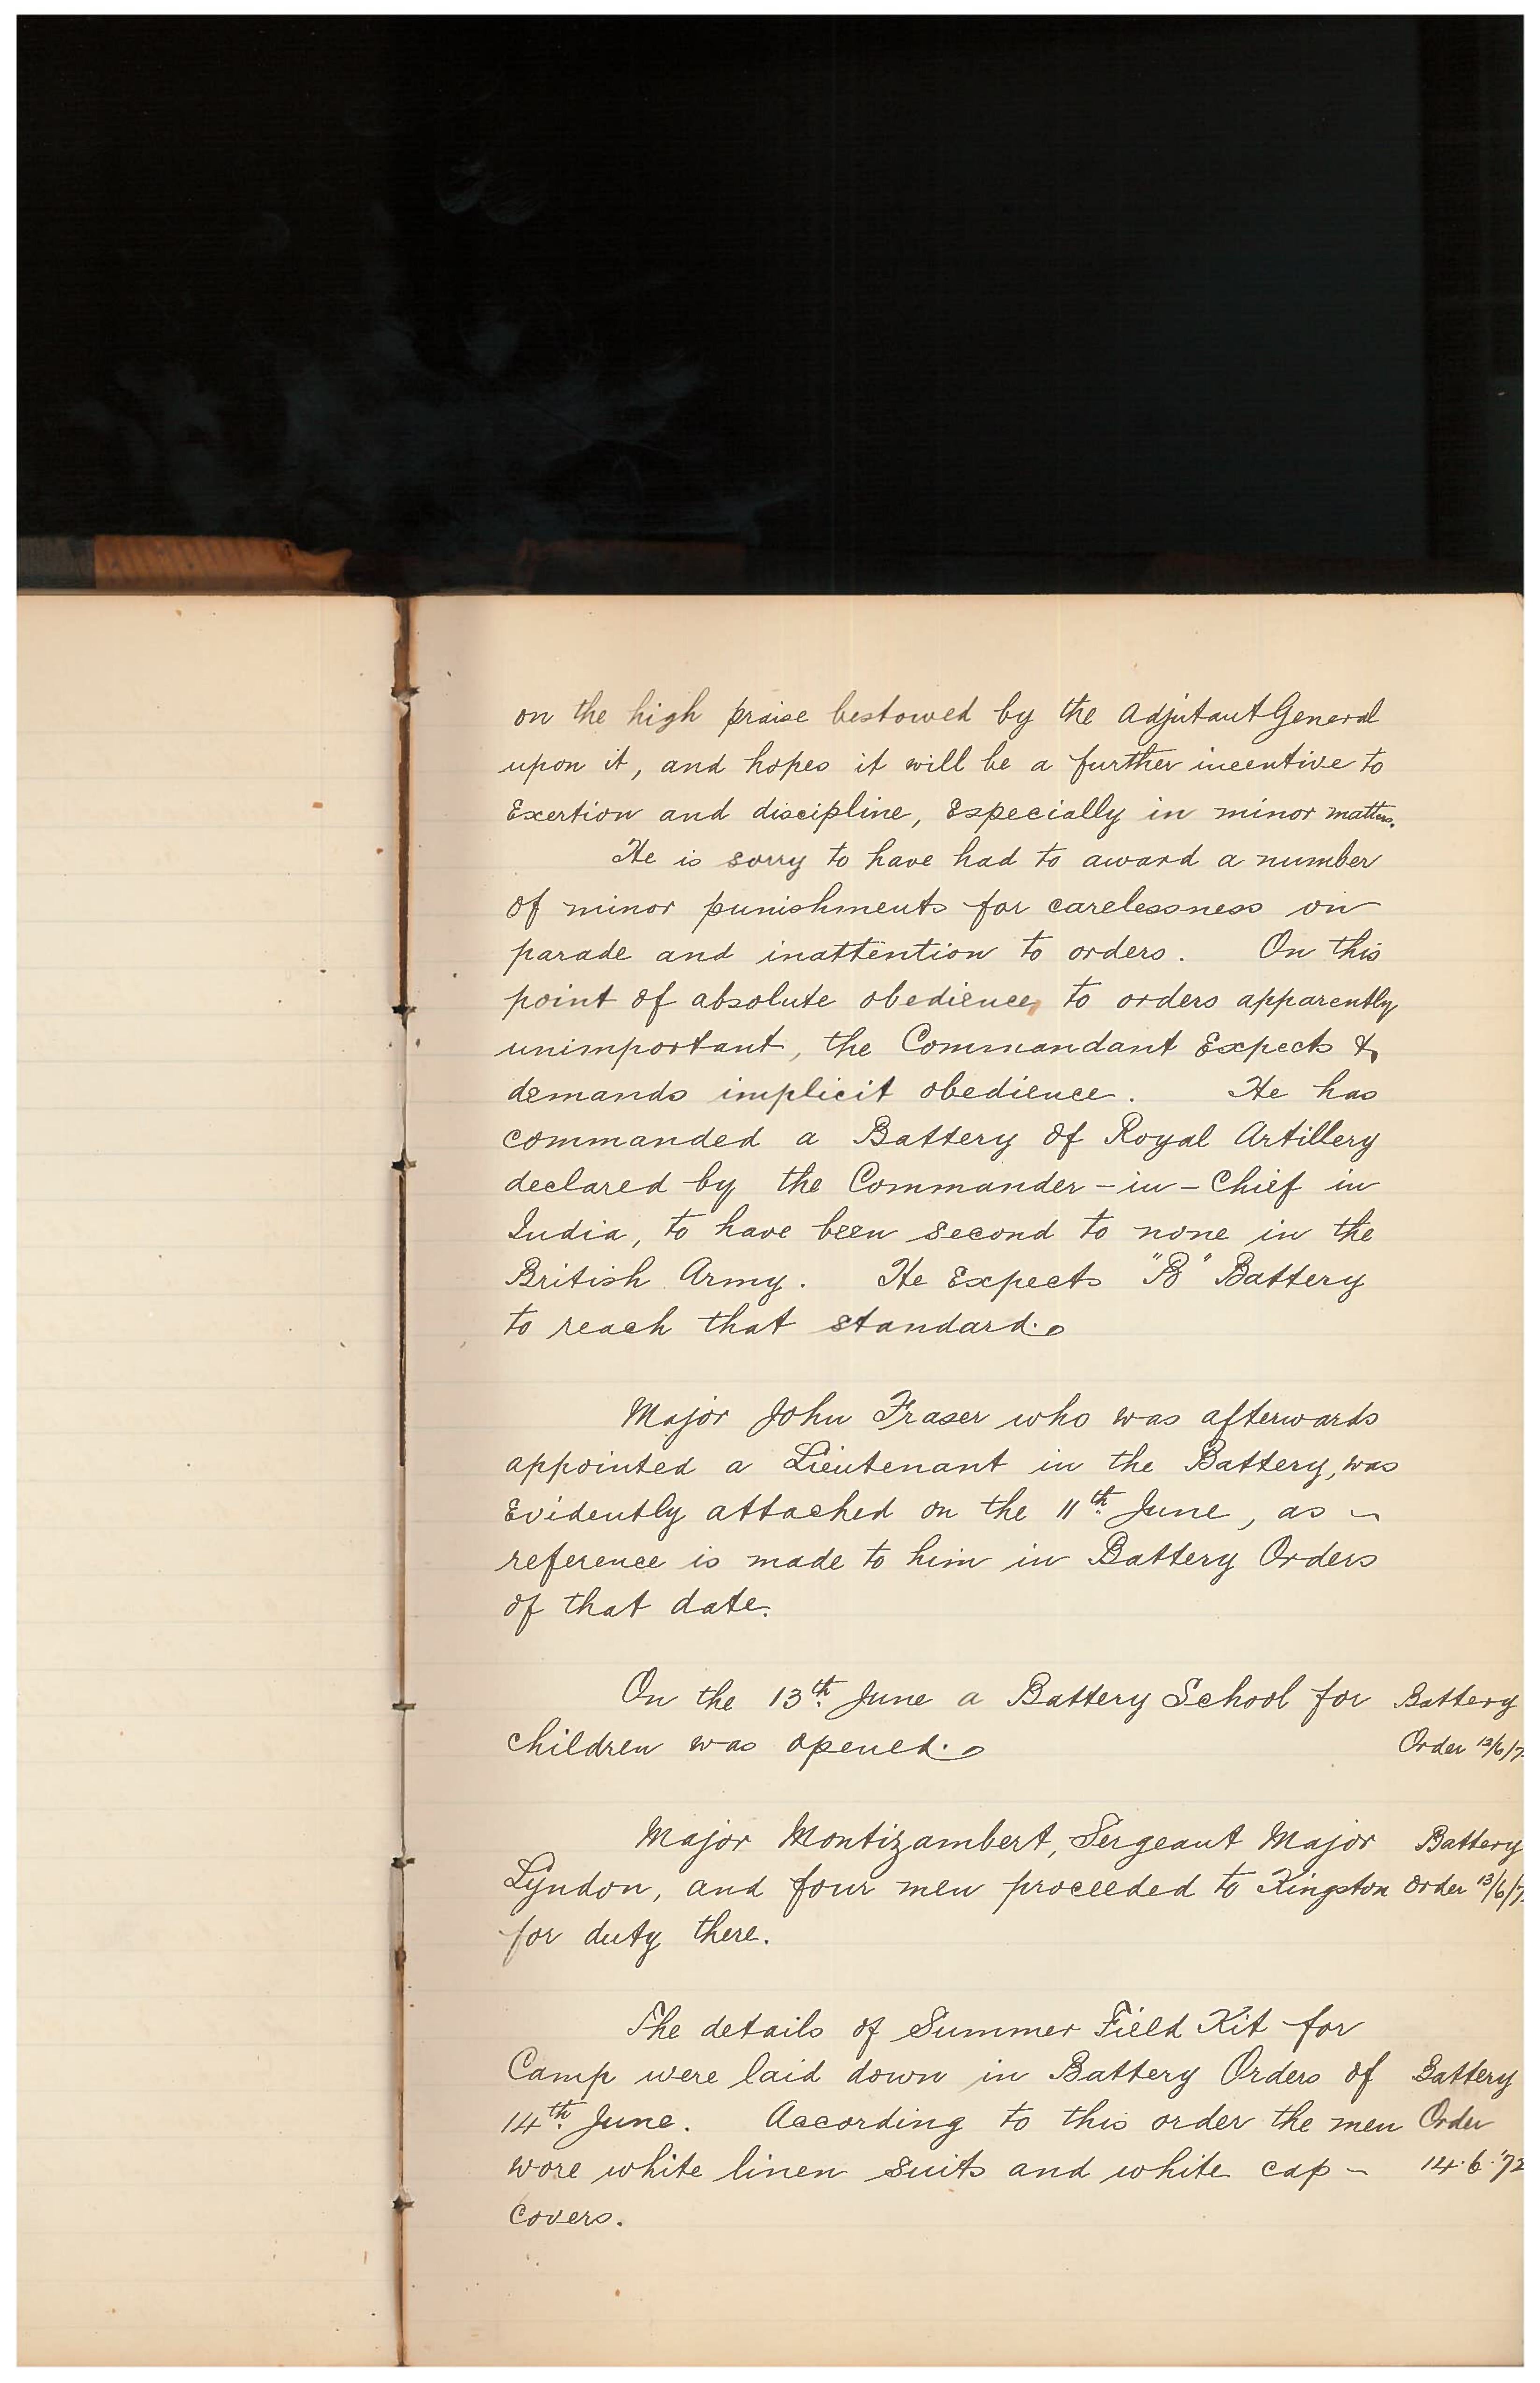 on the high praise bestowed by the Adjutant General
upon it, and hopes it will be a further incentive to
Exertion and discipline, Especially in minor matters.
He is sorry to have had to award a number
of minor punishments for carelessness on
parade and inattention to orders. On this
point of absolute obedience, to orders apparently
unimportant, the Commandant Expects &
demands implicit obedience. He has
commanded a Battery of Royal Artillery
declared by the Commander-in-Chief in
India, to have been second to none in the
British Army. He Expects "B" Battery
to reach that standard.
Major John Fraser who was afterwards
appointed a Lieutenant in the Battery, was
Evidently attached on the 11th June, as
reference is made to him in Battery Orders
of that date.
On the 13th June a Battery School for Battery
children was opened. Order
Major Montizambert, Sergeant Major Battery
Lyndon, and four men proceeded to Kingston Order 13/6/7
for duty there.
The details of Summer Field Kit for
Camp were laid down in Battery Orders of Battery
14th June. According to this order the men Order
wore white linen suits and white cap- 14.6.'72
covers.